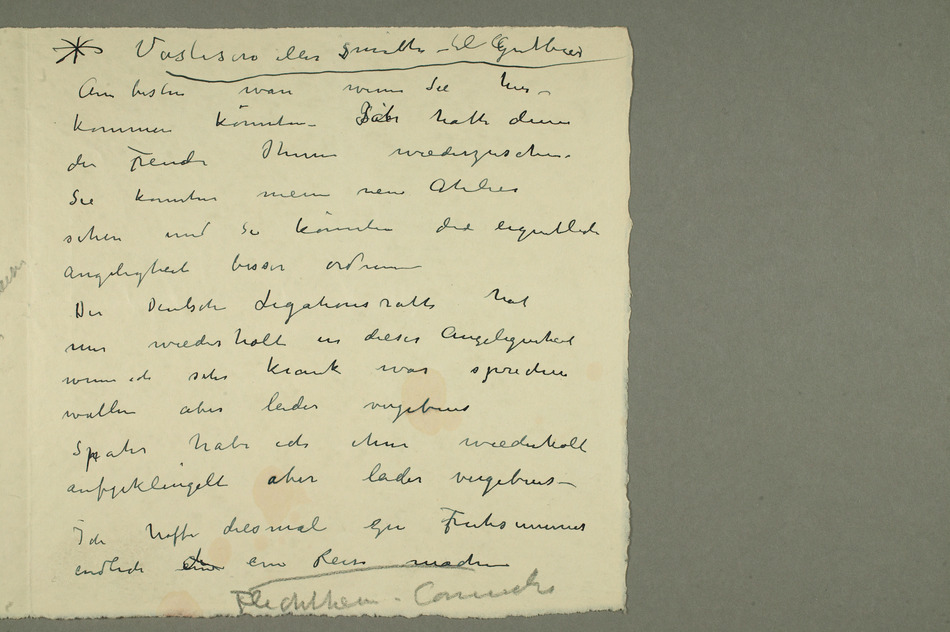 Am besten wäre wenn Sie hier-
kommen könnten. hatte dann
die Freude Ihnen wiederzusehen.
Sie konnten mein neue Atelier
sehen und Sie könnten die eigentlich
Angeligheit besser ordnen
Der Deutsche Legationsratts hat
mir wiederholt in dieser Angelegenheit
wenn ich sehr krank war sprechen
wollen aber leider vergebens
Später habe ich ihm wiederholt
aufgeklingelt aber leider vergebens—
Ich hoffe diesmal Fruhsummer
endlich eine Reise machen
Flechtheim -